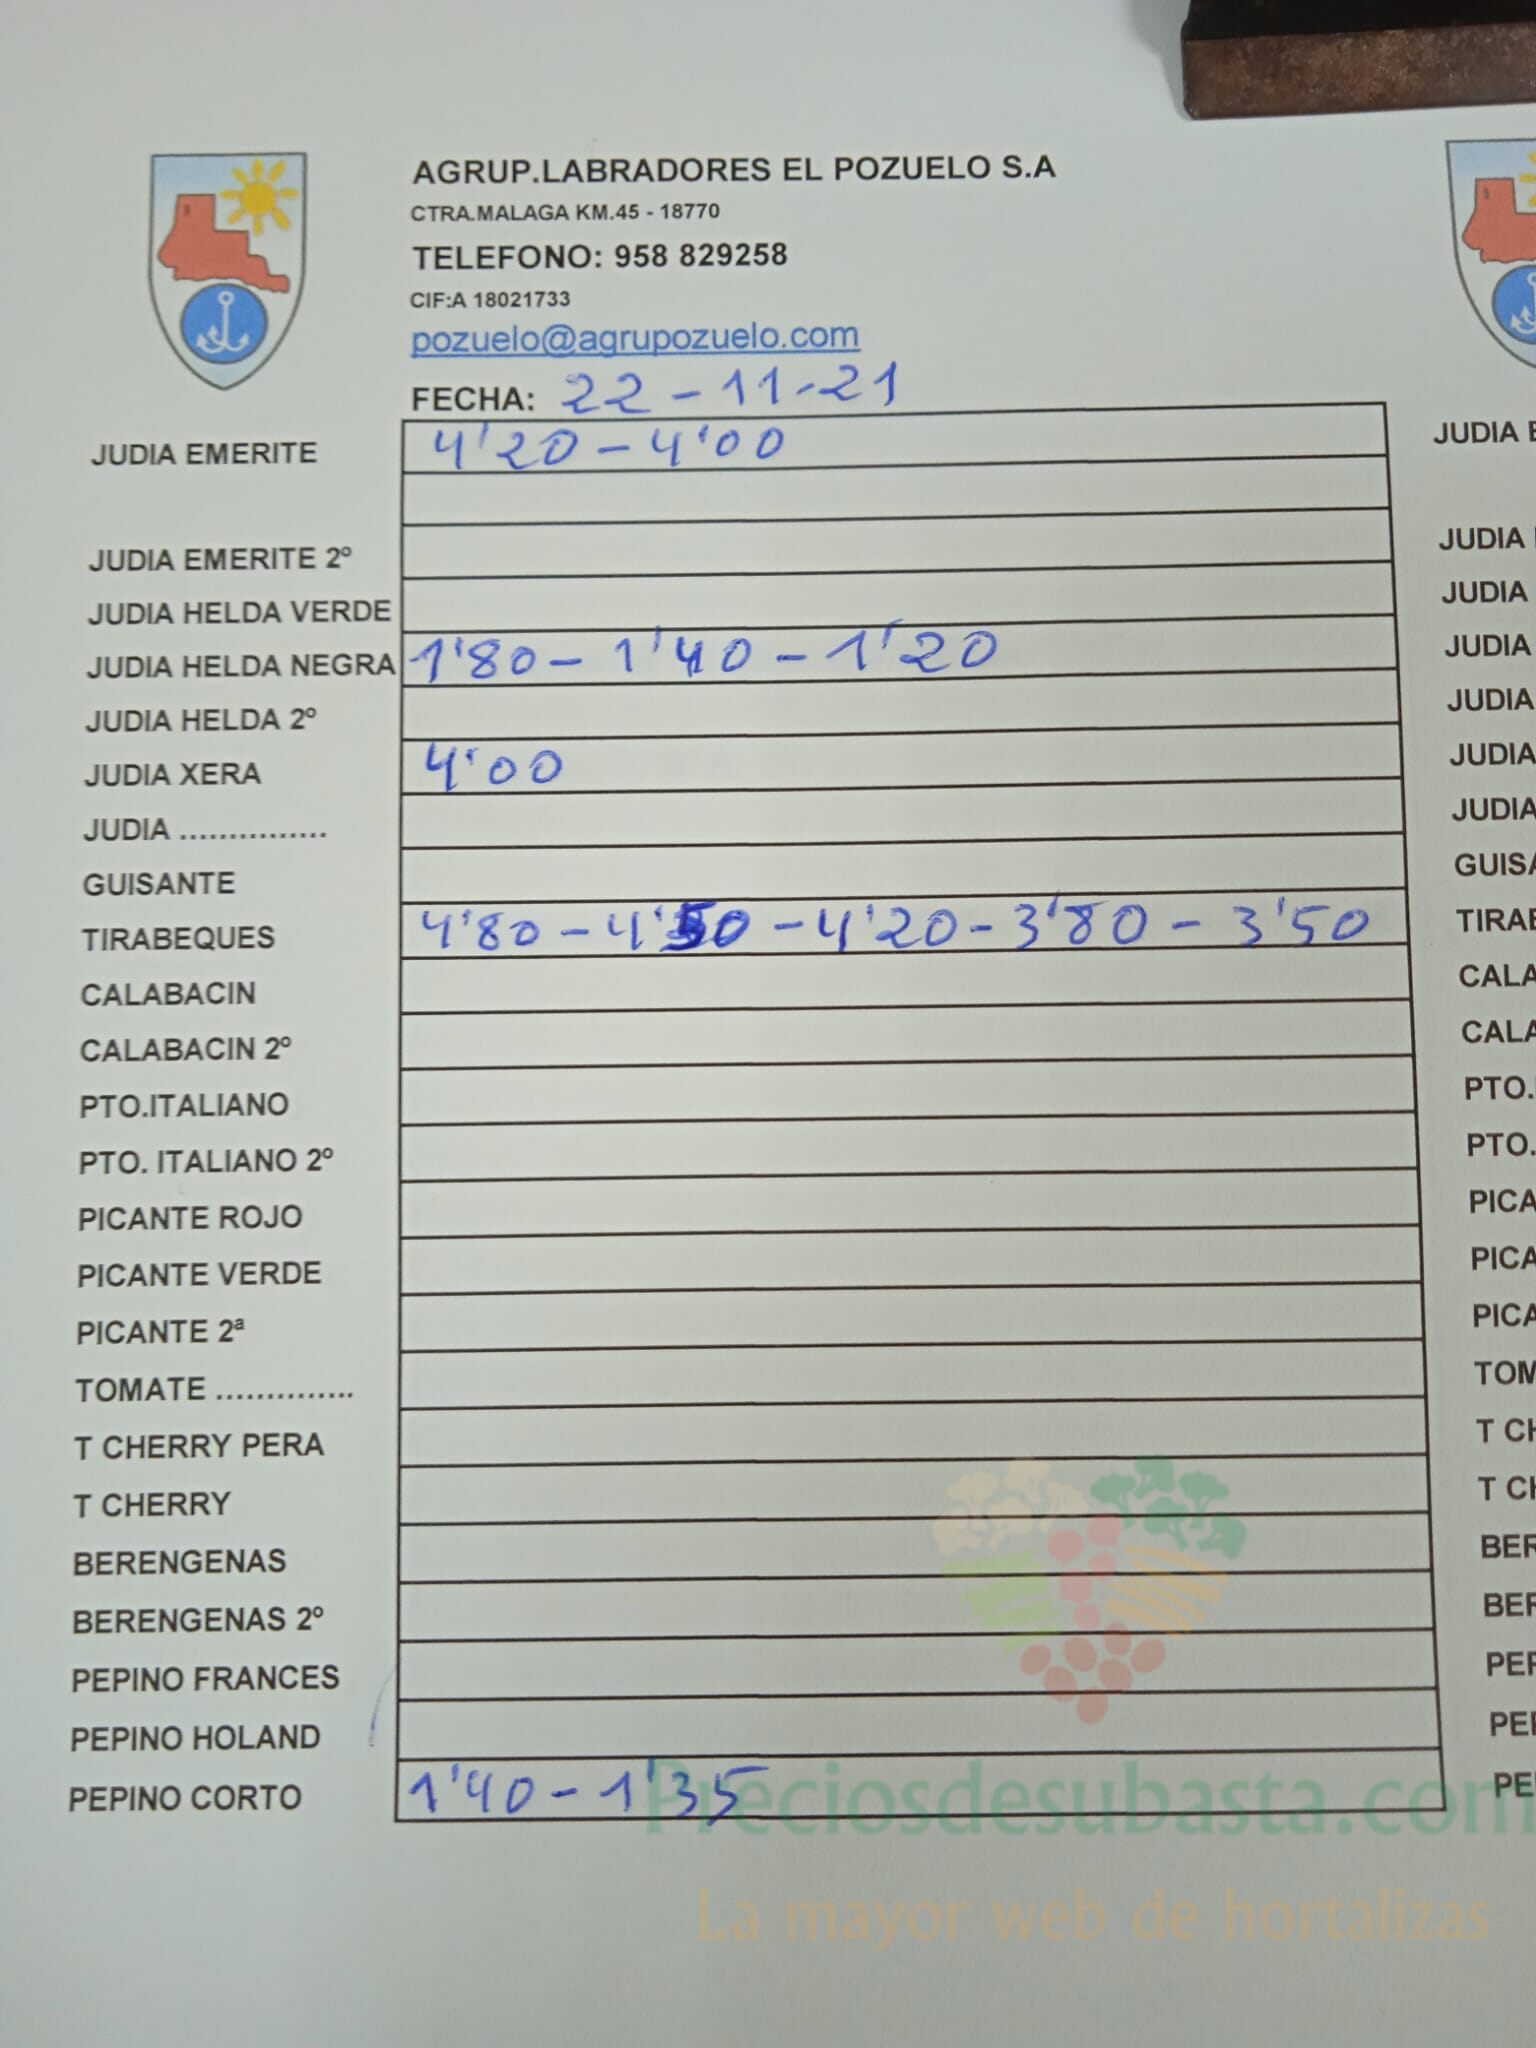 AGRUP.LABRADORES EL POZUELO S.A
CTRA.MALAGA KM.45 - 18770
TELEFONO: 958 829258
CIF:A 18021733
pozuelo@agrupozuelo.com
FECHA: 22-11-21
JUDIA EMERITE 4'20 - 4'00
JUDIA EMERITE 2º
JUDIA HELDA VERDE
JUDIA HELDA NEGRA 1'80 - 1'40 - 1'20
JUDIA HELDA 2º
JUDIA XERA 4'00
JUDIA ...............
GUISANTE
TIRABEQUES 4'80 - 4'50 - 4'20 - 3'80 - 3'50
CALABACIN
CALABACIN 2º
PTO.ITALIANO
PTO. ITALIANO 2º
PICANTE ROJO
PICANTE VERDE
PICANTE 2ª
TOMATE ..............
T CHERRY PERA
T CHERRY
BERENGENAS
BERENGENAS 2º
PEPINO FRANCES
PEPINO HOLAND
PEPINO CORTO 1'40 - 1'35
Preciosdesubasta.com
La mayor web de hortalizas
JUDIA E
JUDIA
JUDIA
JUDIA
JUDIA
JUDIA
JUDIA
GUISA
TIRAB
CALA
CALA
PTO.
PTO.
PICA
PICA
PICA
TOM
T CH
T CH
BER
BER
PEP
PEP
PE